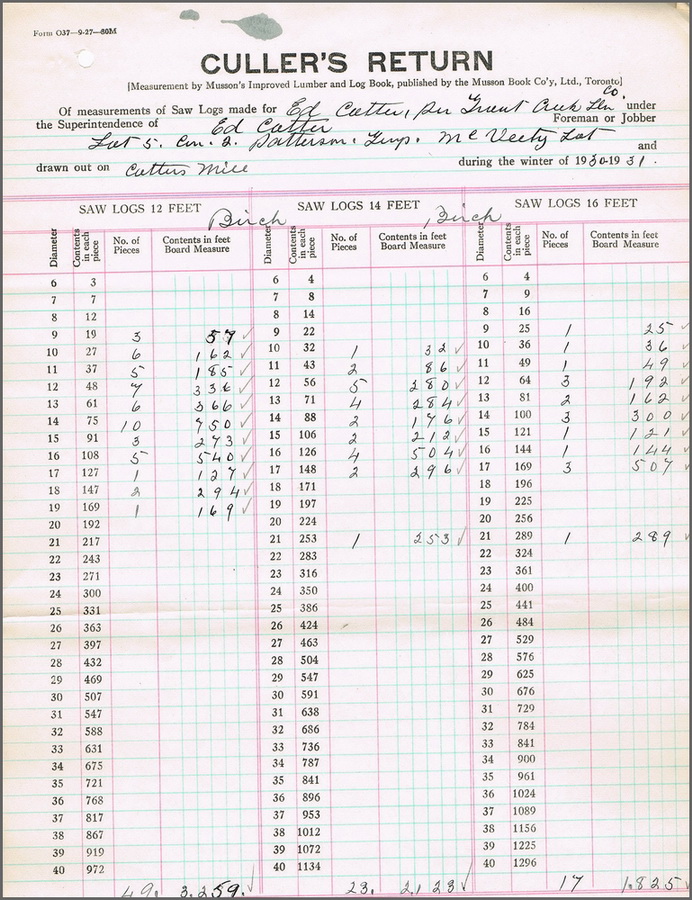 Form O37—9-27—80M
CULLER'S RETURN
[Measurement by Musson's Improved Lumber and Log Book, published by the Musson Book Co'y, Ltd., Toronto]
Of measurements of Saw Logs made for Ed Cotter, per Grant Creek Co. under
the Superintendence of Ed Cotter Foreman or Jobber
Lot 5. Con. 2. Patterson. Twp. Mc Veety Lot and
drawn out on Cotters Mill during the winter of 1930-1931.
SAW LOGS 12 FEET SAW LOGS 14 FEET SAW LOGS 16 FEET
Birch Birch
Diameter Contents in each piece No. of Pieces Contents in feet Board Measure Diameter Contents in each piece No. of Pieces Contents in feet Board Measure Diameter Contents in each piece No. of Pieces Contents in feet Board Measure
6 3 6 4 6 4
7 7 7 8 7 9
8 12 8 14 8 16
9 19 3 57 ✓ 9 22 9 25 1 25 ✓
10 27 6 162 ✓ 10 32 1 32 ✓ 10 36 1 36 ✓
11 37 5 185 ✓ 11 43 2 86 ✓ 11 49 1 49 ✓
12 48 7 336 ✓ 12 56 5 280 ✓ 12 64 3 192 ✓
13 61 6 366 ✓ 13 71 4 284 ✓ 13 81 2 162 ✓
14 75 10 750 ✓ 14 88 2 176 ✓ 14 100 3 300 ✓
15 91 3 273 ✓ 15 106 2 212 ✓ 15 121 1 121 ✓
16 108 5 540 ✓ 16 126 4 504 ✓ 16 144 1 144 ✓
17 127 1 127 ✓ 17 148 2 296 ✓ 17 169 3 507 ✓
18 147 2 294 ✓ 18 171 18 196
19 169 1 169 ✓ 19 197 19 225
20 192 20 224 20 256
21 217 21 253 1 253 ✓ 21 289 1 289 ✓
22 243 22 283 22 324
23 271 23 316 23 361
24 300 24 350 24 400
25 331 25 386 25 441
26 363 26 424 26 484
27 397 27 463 27 529
28 432 28 504 28 576
29 469 29 547 29 625
30 507 30 591 30 676
31 547 31 638 31 729
32 588 32 686 32 784
33 631 33 736 33 841
34 675 34 787 34 900
35 721 35 841 35 961
36 768 36 896 36 1024
37 817 37 953 37 1089
38 867 38 1012 38 1156
39 919 39 1072 39 1225
40 972 40 1134 40 1296
49. 3.259. ✓ 23. 2,123 ✓ 17 1,825 ✓